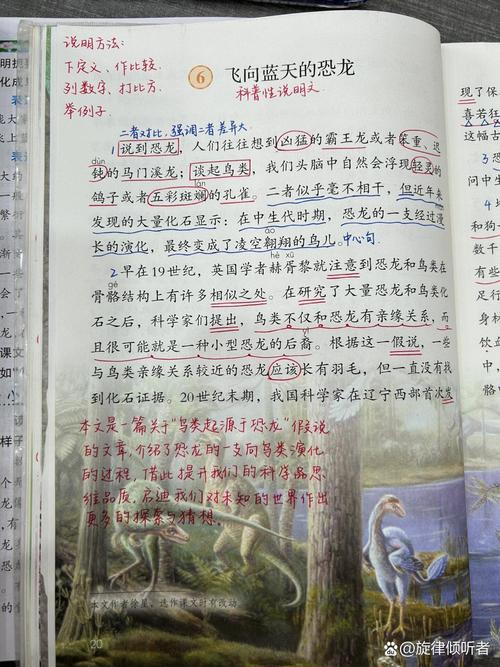 说明方法:
下定义、作比较、
列数字、打比方、
举例子
6 飞向蓝天的恐龙
科普性说明文
二者对比,强调二者差异大
1 说到恐龙,人们往往想到凶猛的霸王龙或者笨重、迟
dùn
钝的马门溪龙;谈起鸟类,我们头脑中自然会浮现轻灵的
lán
鸽子或者五彩斑斓的孔雀。二者似乎毫不相干,但近年来
发现的大量化石显示:在中生代时期,恐龙的一支经过漫
áo
长的演化,最终变成了凌空翱翔的鸟儿。中心句
hè xū
2 早在19世纪,英国学者赫胥黎就注意到恐龙和鸟类在
骨骼结构上有许多相似之处。在研究了大量恐龙和鸟类化
石之后,科学家们提出,鸟类不仅和恐龙有亲缘关系,而
yì
且很可能就是一种小型恐龙的后裔。根据这一假说,一些
与鸟类亲缘关系较近的恐龙应该长有羽毛,但一直没有找
到化石证据。20世纪末期,我国科学家在辽宁西部首次发
本文是一篇关于“鸟类起源于恐龙”假说
的文章,介绍了恐龙的一支向鸟类演化
的过程,借此提升我们的科学品思
维品质,启迪我们对未知的世界作出
更多的探索与猜想。
本文作者徐星,选作课文时有改动
20
现了保
喜若狂
3
间中生
4
和狗
@旋律倾听者